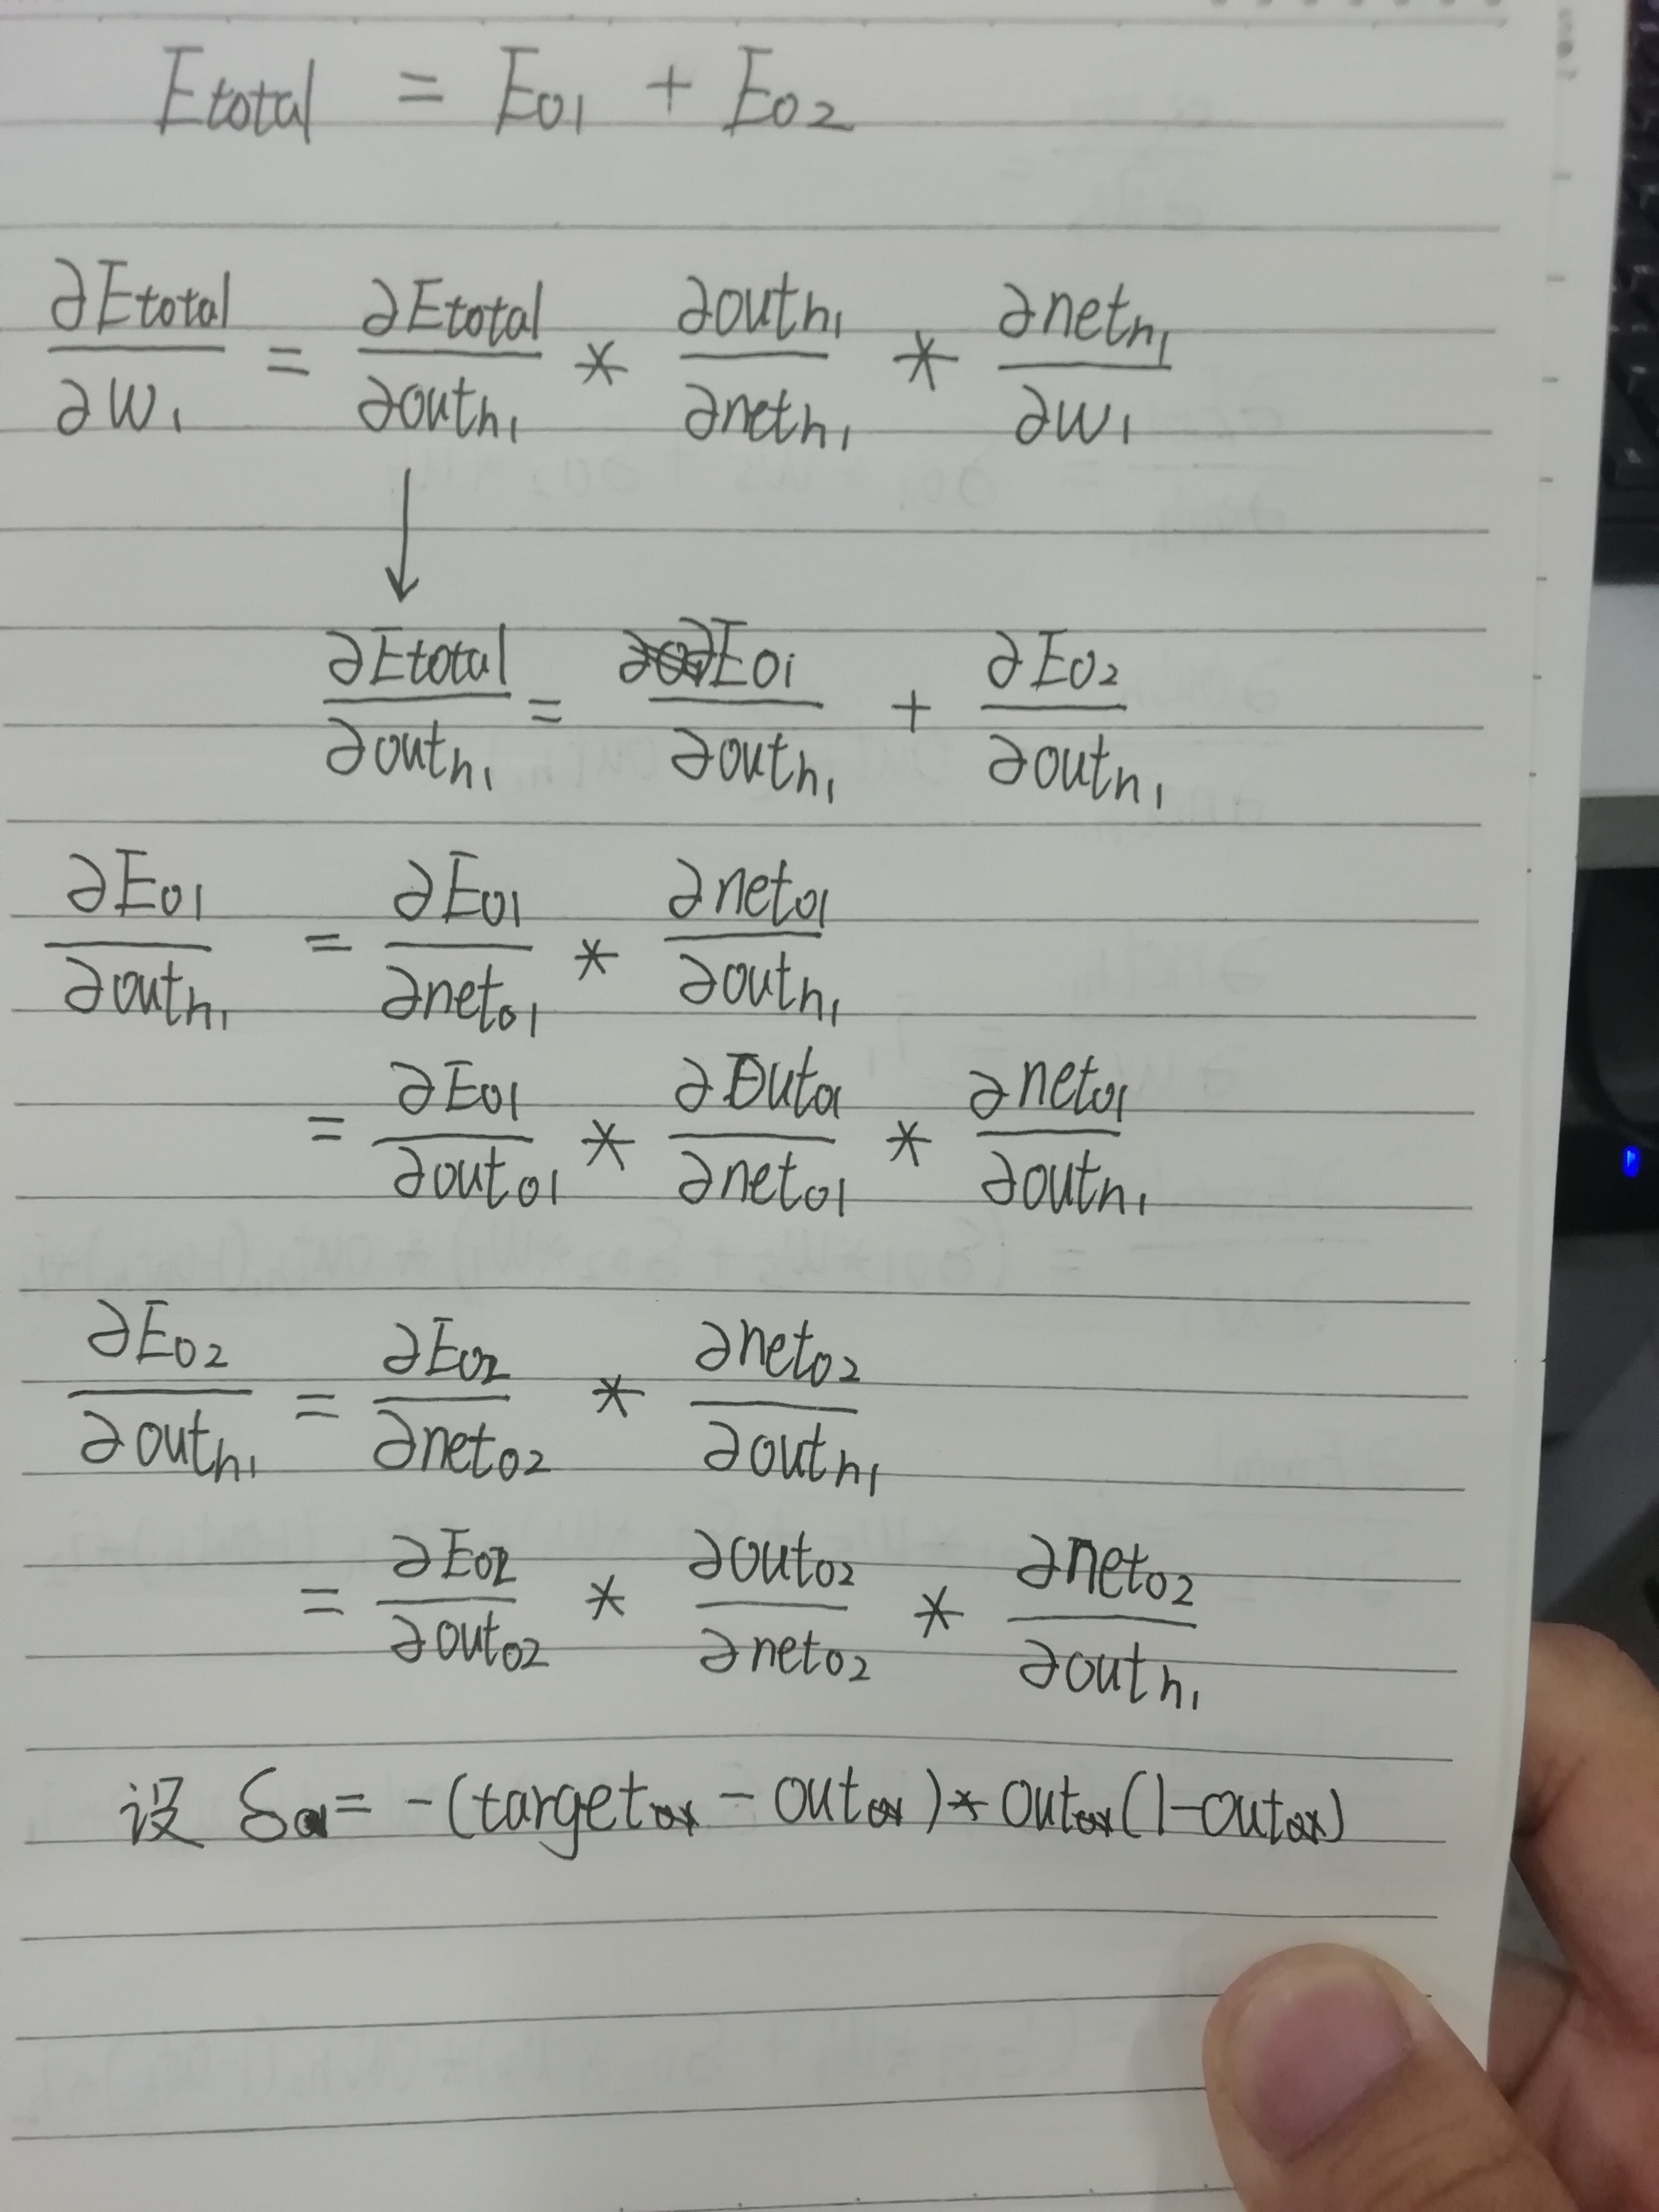 Etotal = Eo1 + Eo2
∂Etotal/∂w1 = ∂Etotal/∂outh1 * ∂outh1/∂neth1 * ∂neth1/∂w1
↓
∂Etotal/∂outh1 = ∂Eo1/∂outh1 + ∂Eo2/∂outh1
∂Eo1/∂outh1 = ∂Eo1/∂neto1 * ∂neto1/∂outh1
= ∂Eo1/∂outo1 * ∂outo1/∂neto1 * ∂neto1/∂outh1
∂Eo2/∂outh1 = ∂Eo2/∂neto2 * ∂neto2/∂outh1
= ∂Eo2/∂outo2 * ∂outo2/∂neto2 * ∂neto2/∂outh1
设 δox = -(targetox - outox) * outox(1-outox)